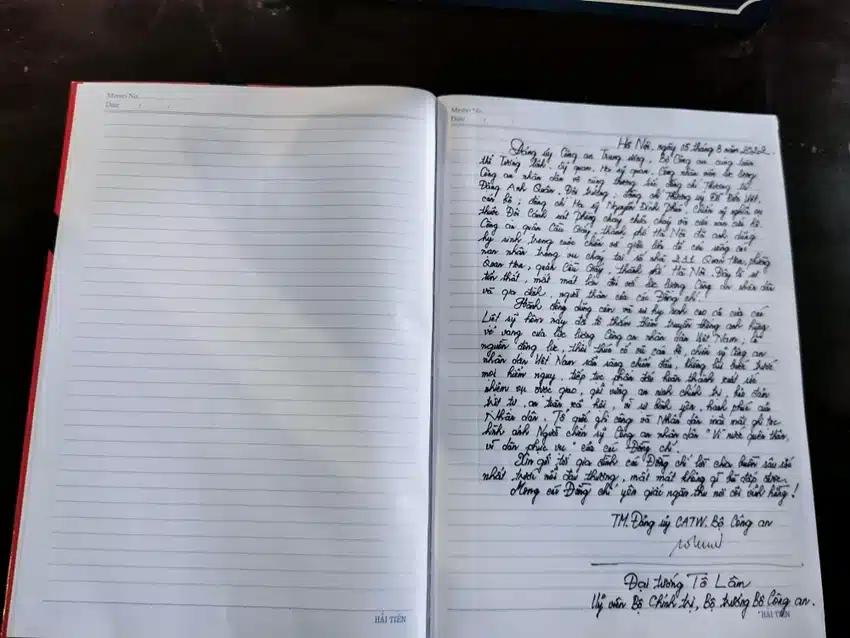 Memo No.
Date / /
Memo No.
Date / /
Hà Nội, ngày 05 tháng 8 năm 2022.
Đảng ủy Công an Trung ương, Bộ Công an cùng toàn
thể Tướng lĩnh, Sỹ quan, Hạ sỹ quan, Công nhân viên lực lượng
Công an nhân dân vô cùng thương tiếc đồng chí Thượng tá
Đặng Anh Quân, Đội trưởng; đồng chí Thượng úy Đỗ Đức Việt,
cán bộ; đồng chí Hạ sỹ Nguyễn Đình Phúc, chiến sỹ nghĩa vụ
thuộc Đội Cảnh sát Phòng cháy chữa cháy và cứu nạn cứu hộ,
Công an quận Cầu Giấy, thành phố Hà Nội đã anh dũng
hy sinh trong cuộc chiến với giặc lửa để cứu sống các
nạn nhân trong vụ cháy tại số nhà 231 Quan Hoa, phường
Quan Hoa, quận Cầu Giấy, thành phố Hà Nội. Đây là sự
tổn thất, mất mát lớn đối với lực lượng Công an nhân dân
và gia đình, người thân của các Đồng chí.
Hành động dũng cảm và sự hy sinh cao cả của các
Liệt sỹ hôm nay đã tô thắm thêm truyền thống anh hùng
vẻ vang của lực lượng Công an nhân dân Việt Nam, là
nguồn động lực, thôi thúc cổ vũ cán bộ, chiến sỹ Công an
nhân dân Việt Nam sẵn sàng chiến đấu, không lùi bước trước
mọi hiểm nguy, tiếp tục phấn đấu hoàn thành xuất sắc
nhiệm vụ được giao, giữ vững an ninh chính trị, bảo đảm
trật tự, an toàn xã hội, vì sự bình yên, hạnh phúc của
Nhân dân. Tổ quốc ghi công và Nhân dân mãi mãi ghi tạc
hình ảnh Người chiến sỹ Công an nhân dân "Vì nước quên thân,
vì dân phục vụ" của các Đồng chí.
Xin gửi tới gia đình các Đồng chí lời chia buồn sâu sắc
nhất trước nỗi đau thương, mất mát không gì bù đắp được.
Mong các Đồng chí yên giấc ngàn thu nơi cõi vĩnh hằng!
TM. Đảng ủy CATW, Bộ Công an
Đại tướng Tô Lâm
Uỷ viên Bộ Chính trị, Bộ trưởng Bộ Công an.
HẢI TIẾN
HẢI TIẾN